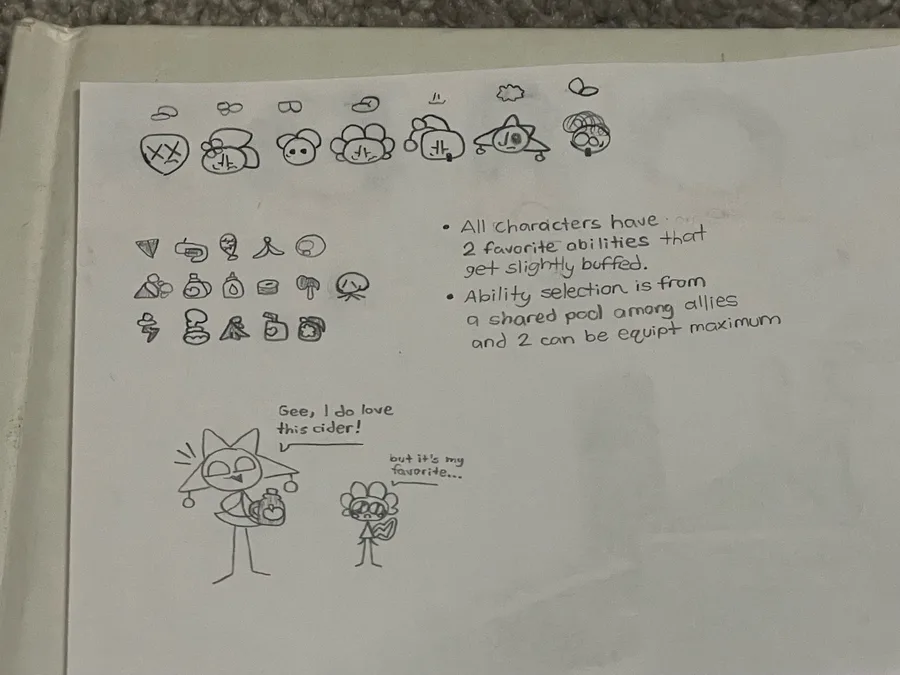 • All characters have
2 favorite abilities that
get slightly buffed.
• Ability selection is from
a shared pool among allies
and 2 can be equipt maximum
Gee, I do love
this cider!
but it's my
favorite...